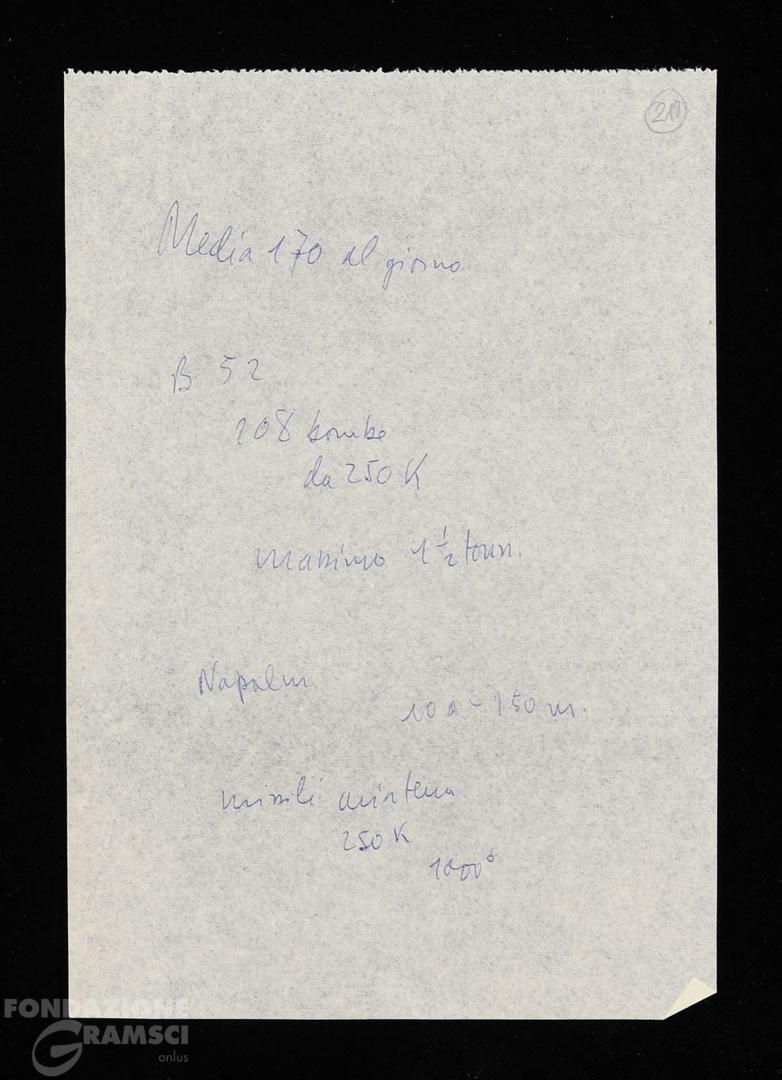 Media 170 al giorno
B 52
108 bombe
da 250 K
Massimo 1 1/2 tonn.
Napalm
100 - 150 m.
missili aria terra
250 K
1000°
FONDAZIONE
GRAMSCI
onlus